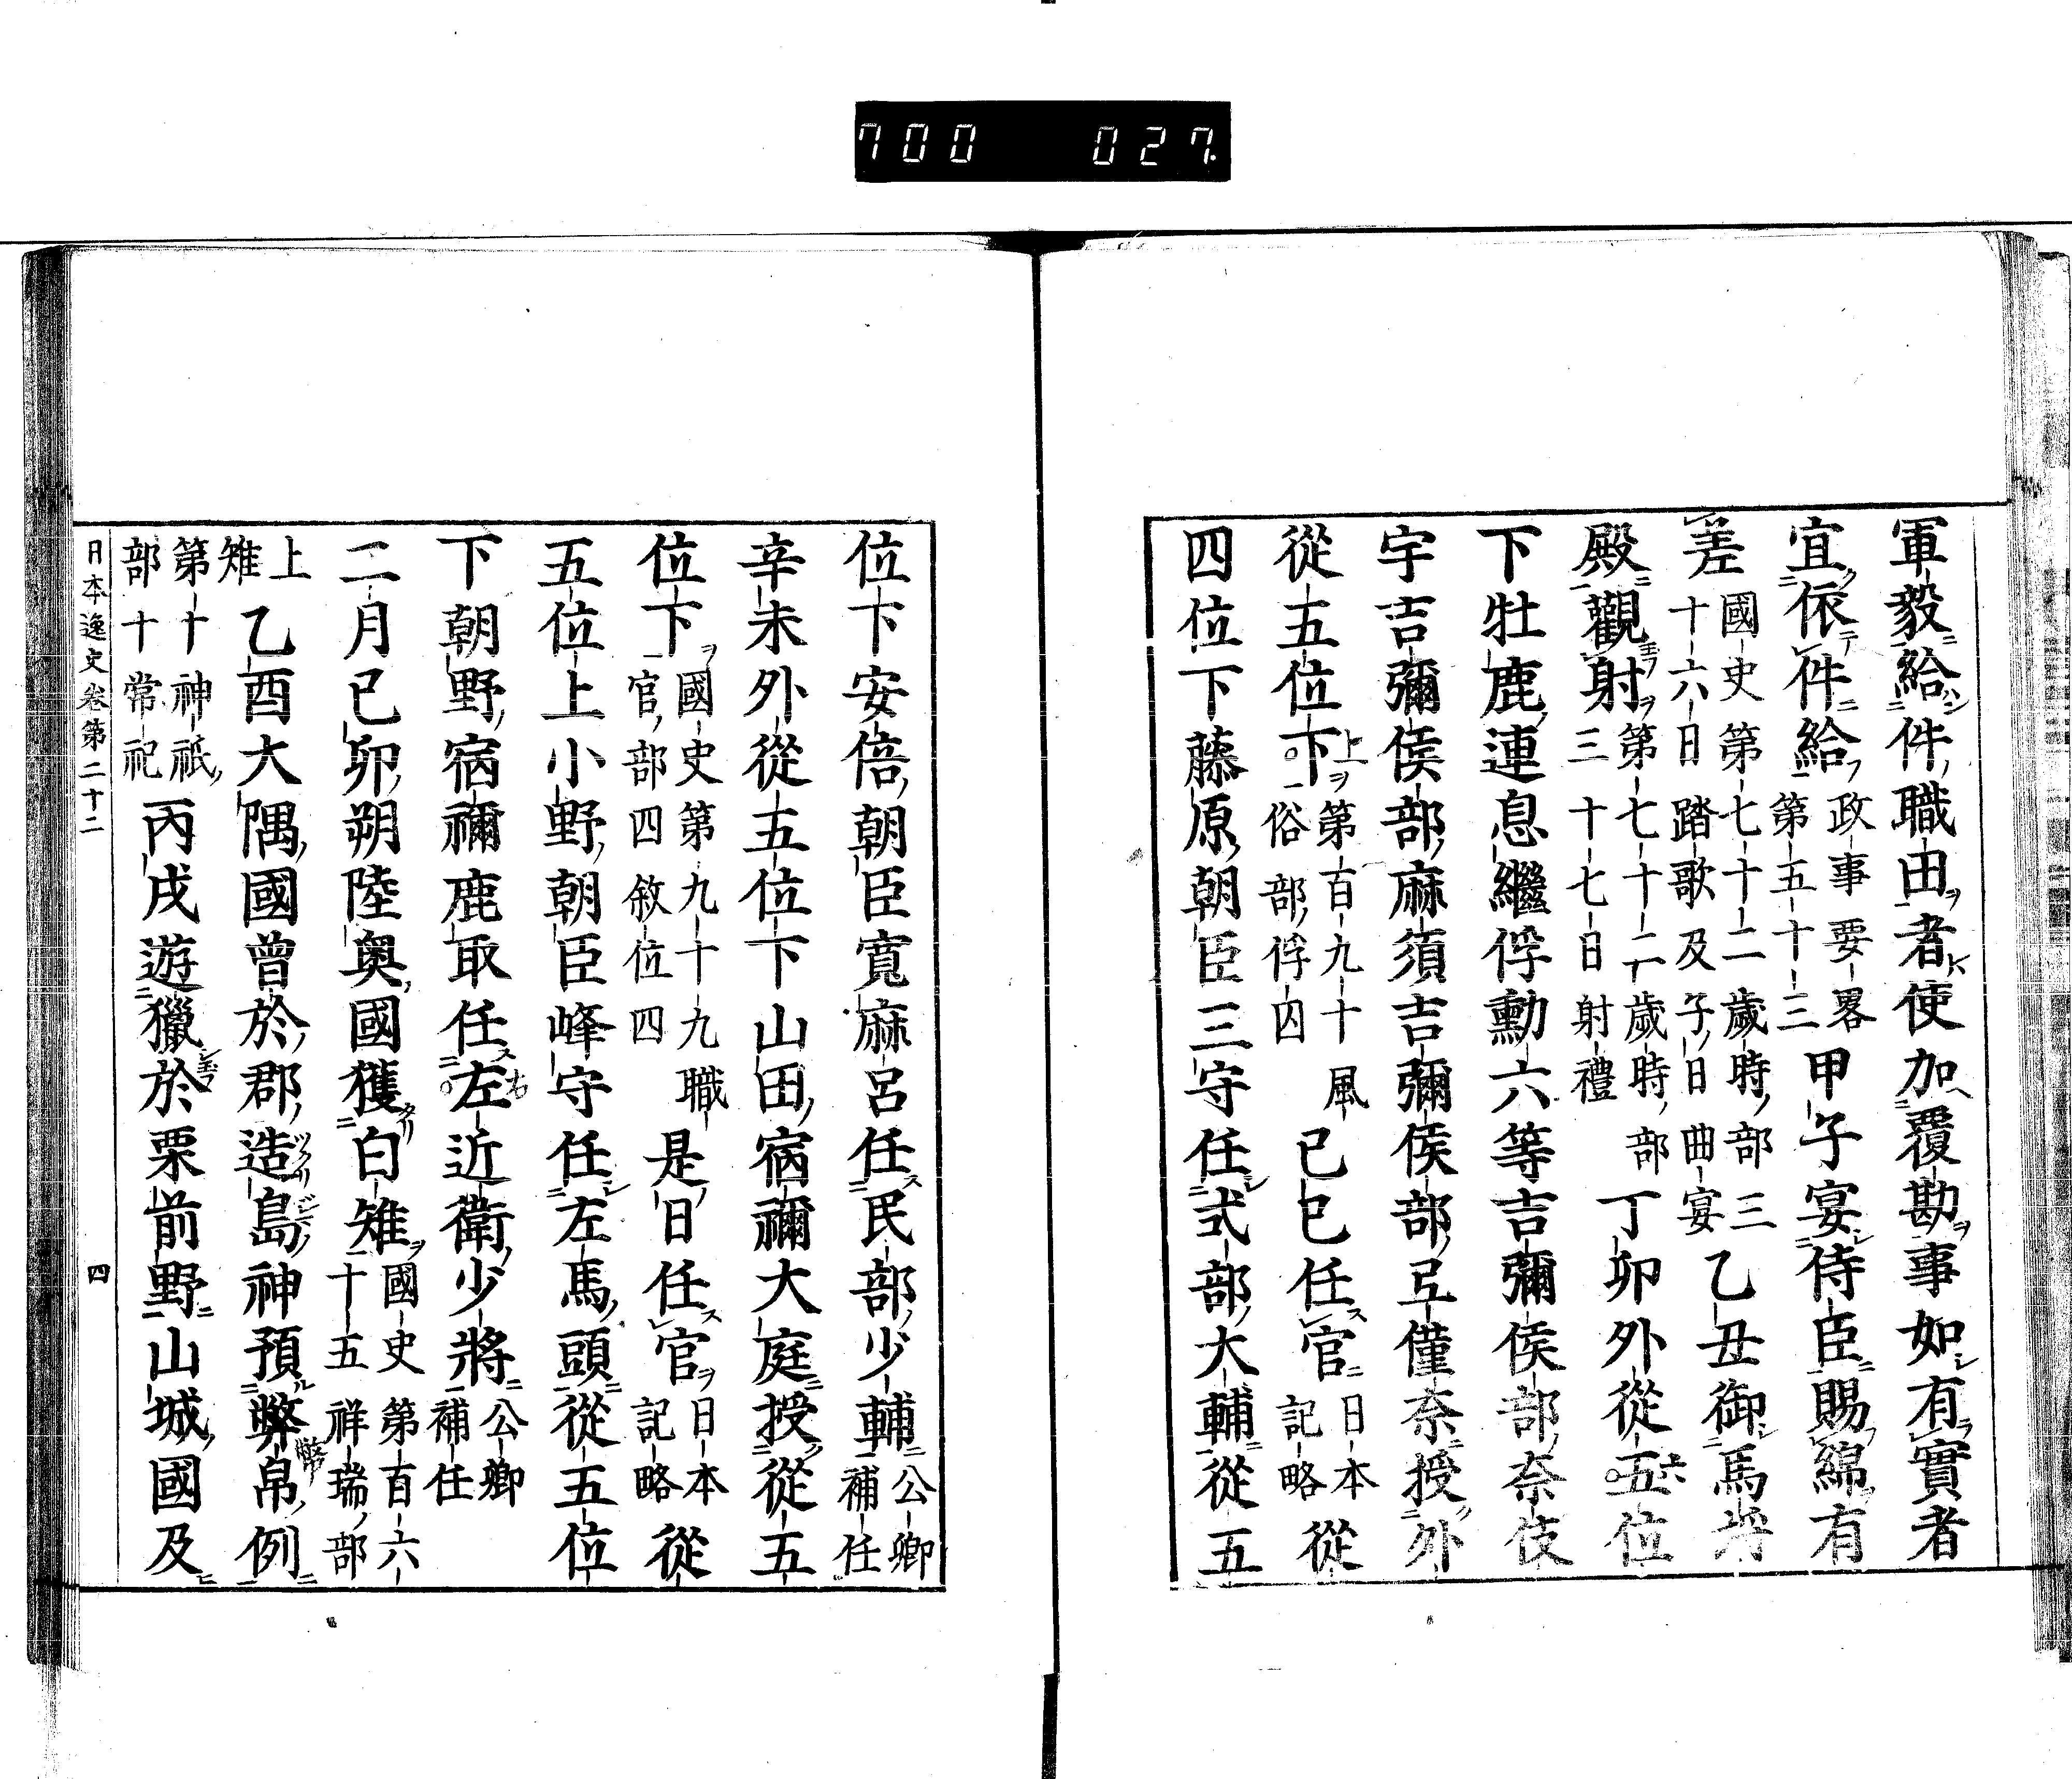 700 027
軍毅給件職田者使加覆勘事如有實者
宜依件給政事要畧第五十三甲子宴侍臣賜綿有
差國史第七十二歲時部三十六日踏歌及子日曲宴乙丑御馬埒
殿觀射第七十二歲時部三十七日射禮丁卯外從五位
下牡鹿連息繼俘勳六等吉彌侯部奈伎
宇吉彌侯部麻須吉彌侯部弖僅奈授外
從五位下第百九十風俗部俘囚己巳任官日本記略從
四位下藤原朝臣三守任式部大輔從五
位下安倍朝臣寬麻呂任民部少輔公卿補任
辛未外從五位下山田宿禰大庭授從五
位下國史第九十九職官部四敘位四是日任官日本記略從
五位上小野朝臣峰守任左馬頭從五位
下朝野宿禰鹿取任左近衛少將公卿補任
二月己卯朔陸奧國獲白雉國史第百六十五祥瑞部
上雉乙酉大隅國曾於郡造島神預幣帛例
第十神祇部十常祀丙戌遊獵於栗前野山城國及
日本逸史卷第二十二 四